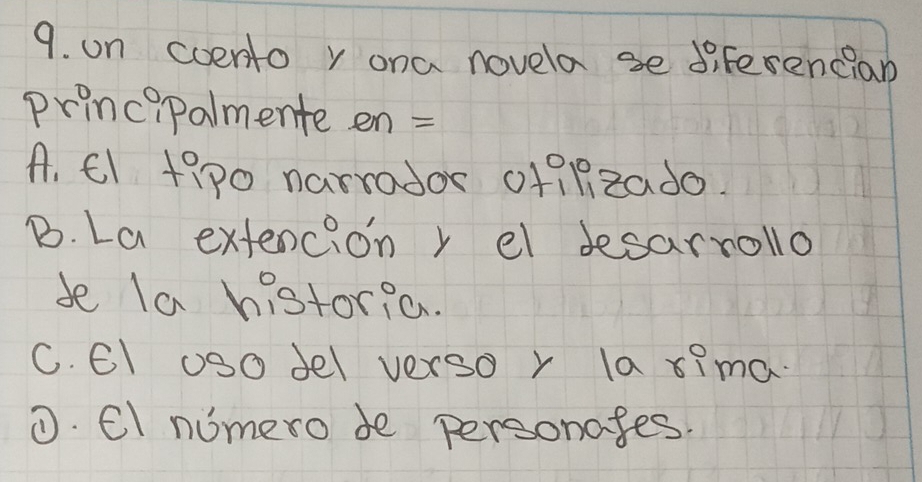 9. un cuento y una novela se diferencian
principalmente en =
A. El tipo narrador utilizado.
B. La extención y el desarrollo
de la historia.
C. El uso del verso y la rima.
D. El número de personajes.